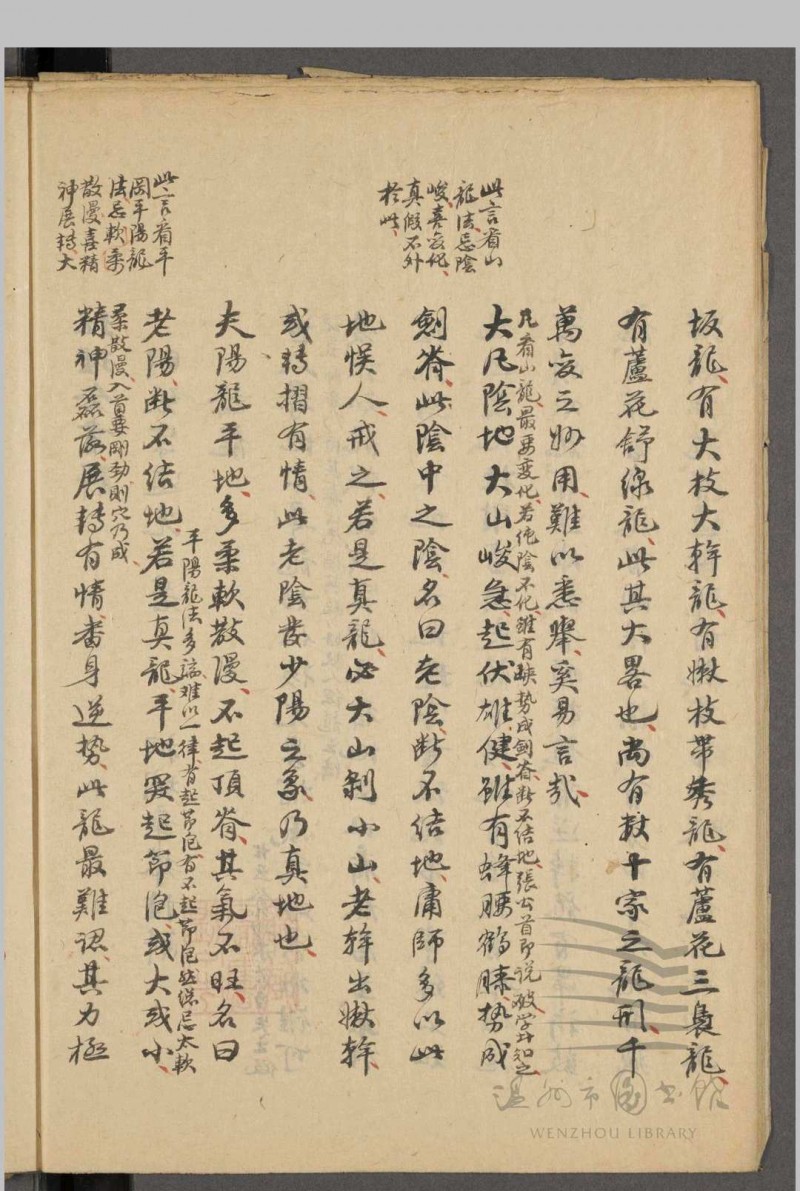 此言看山
龍法忌陰
峻喜变化
真假不外
於此
坂龍有大枝大幹龍有嫩枝帶秀龍有蘆花三裊龍
有蘆花舒線龍此其大畧也尚有数十家之龍刑千
萬变之妙用難以悉舉奚易言哉
凡看山龍最要变化若純陰不化雖有缺势成劍脊断不结地張公首即説破学者知之
大凡陰地大山峻急起伏雄健雖有蜂腰鶴膝势成
劍脊此陰中之陰名曰老陰断不结地庸師多以此
地悮人戒之若是真龍必大山剝小山老幹出嫩幹
或轉摺有情此老陰嵗少陽之象乃真地也
此言看平
岡平陽龍
法忌軟柔
散漫喜精
神展轉大
夫陽龍平地多柔軟散漫不起頂脊其氣不旺名曰
平陽龍法多端难以一律肯起節泡有不起節泡然總忌太軟
老陽断不结地若是真龍平地突起節泡或大或小
柔散漫入首要剛劲則穴乃成
精神磊落展轉有情番身逆势此龍最難認其力極
温州市图书館
WENZHOU LIBRARY